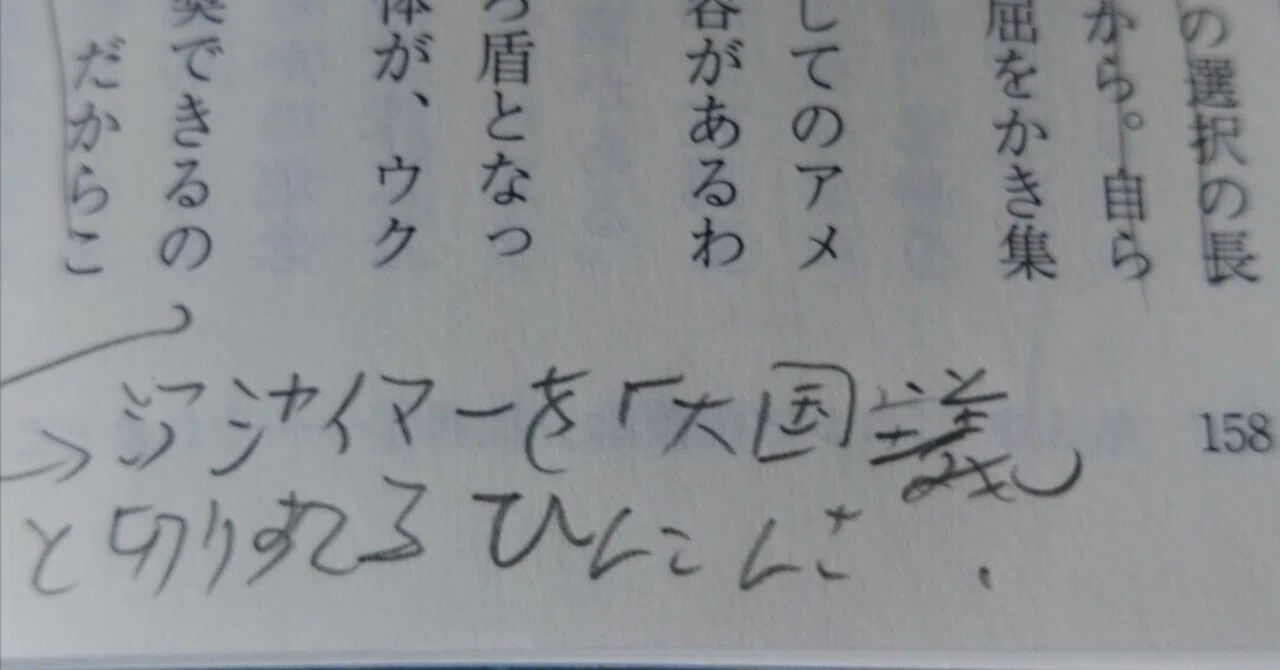 の選択の長
から。自ら
屈をかき集
してのアメ
容があるわ
ろ盾となっ
体が、ウク
できるの
だからこ
158
→ミアシャイマーを「大国主義」
と切りすてるひんこんさ.